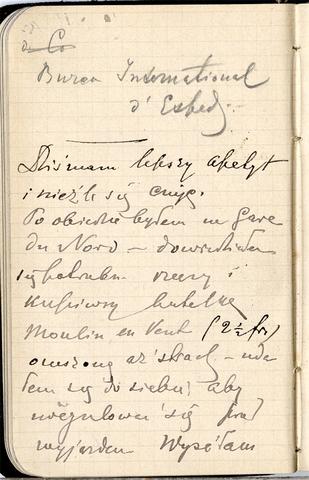 & Co
Bureau International
d'Exped.
Dziś mam lepszy apetyt
i nieźle się czuję.
Po obiedzie byłem na Gare
du Nord – dowiedziałem
się potrzebn. rzeczy i
kupiwszy butelkę
Moulin en Vent (2½ fr)
 – uda
łem się do siebie, aby
 się przed
wyjazdem Wysłałem